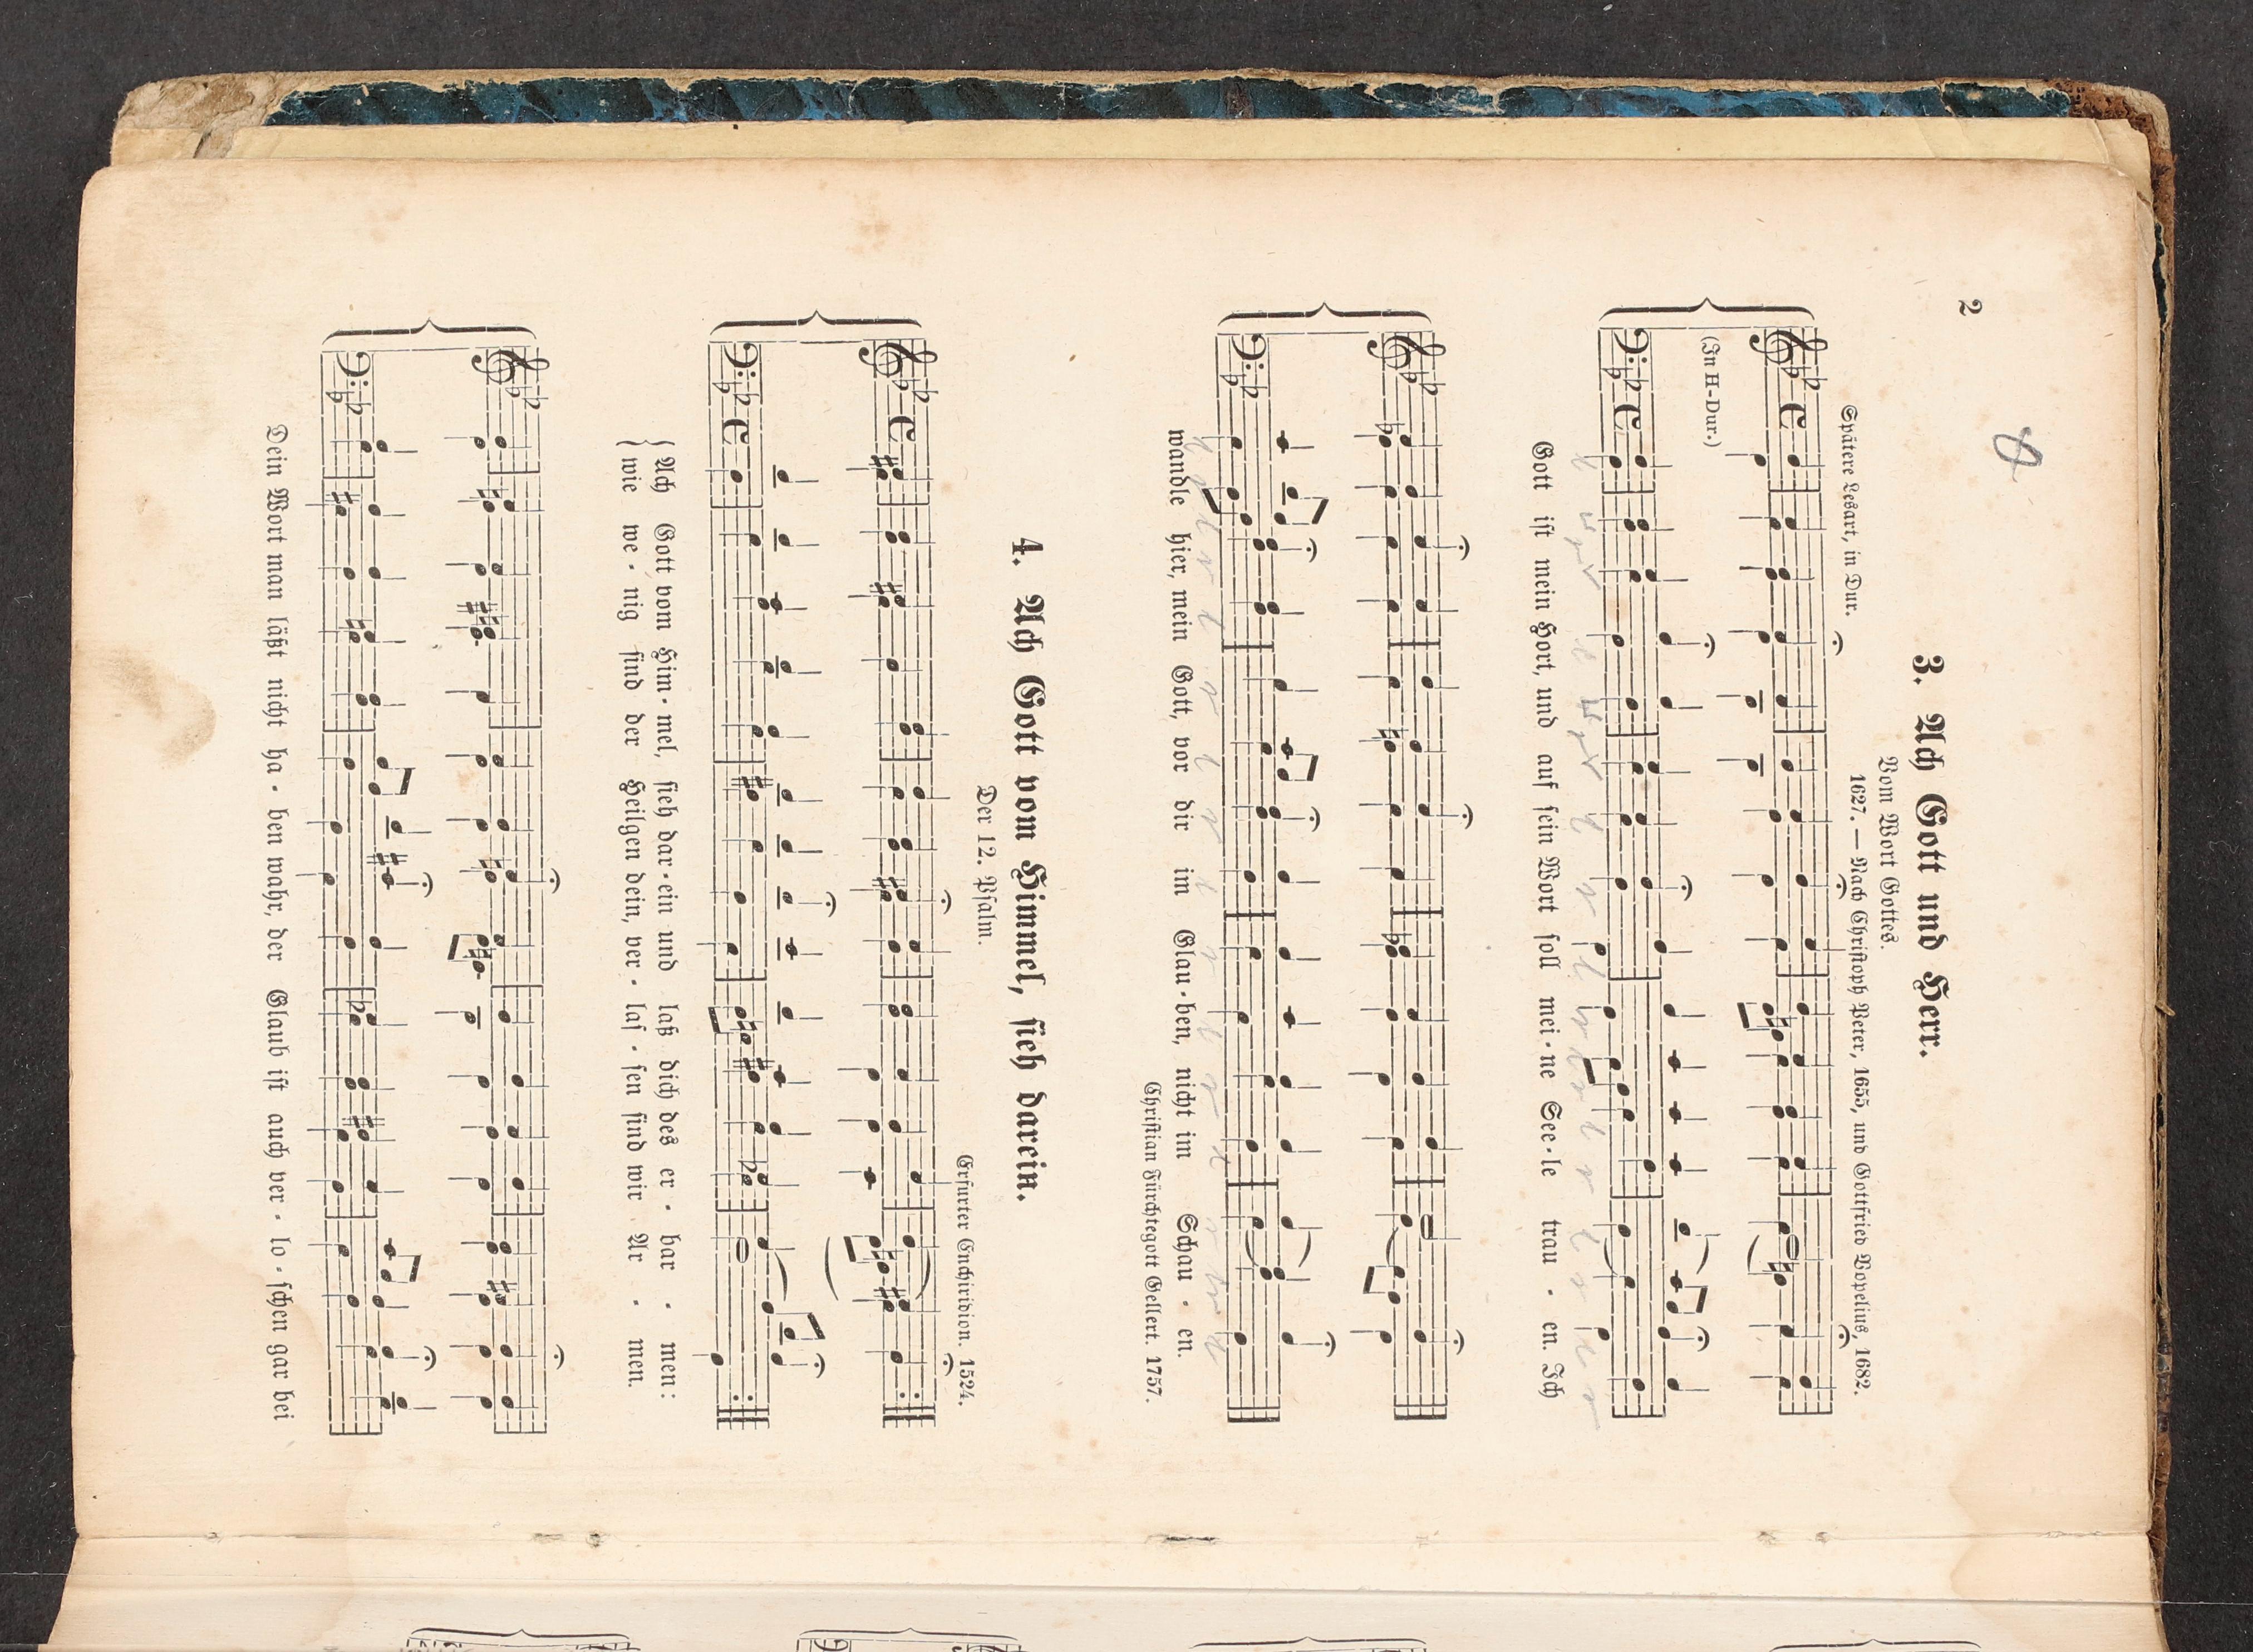 2
3. Ach Gott und Herr.
Vom Wort Gottes.
Spätere Lesart, in Dur.
1627. — Nach Christoph Peter, 1655, und Gottfried Vopelius, 1682.
(In H-Dur.)
Gott ist mein Hort, und auf sein Wort soll mei-ne See-le trau - en. Ich
wandle hier, mein Gott, vor dir im Glau-ben, nicht im Schau - en.
Christian Fürchtegott Gellert. 1757.
4. Ach Gott vom Himmel, sieh darein.
Der 12. Psalm.
Erfurter Enchiridion. 1524.
Ach Gott vom Him-mel, sieh dar-ein und laß dich des er - bar - men:
wie we-nig sind der Heilgen dein, ver-las-sen sind wir Ar - men.
Dein Wort man läßt nicht ha-ben wahr, der Glaub ist auch ver-lo-schen gar bei